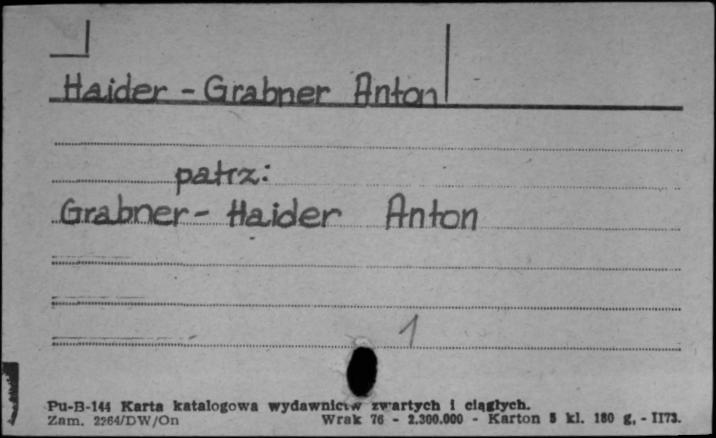 Haider - Grabner Anton
patrz:
Grabner - Haider Anton
1
Pu-B-144 Karta katalogowa wydawnictw zwartych i ciągłych.
Zam. 2264/DW/On Wrak 76 - 2.300.000 - Karton 5 kl. 180 g. - II73.